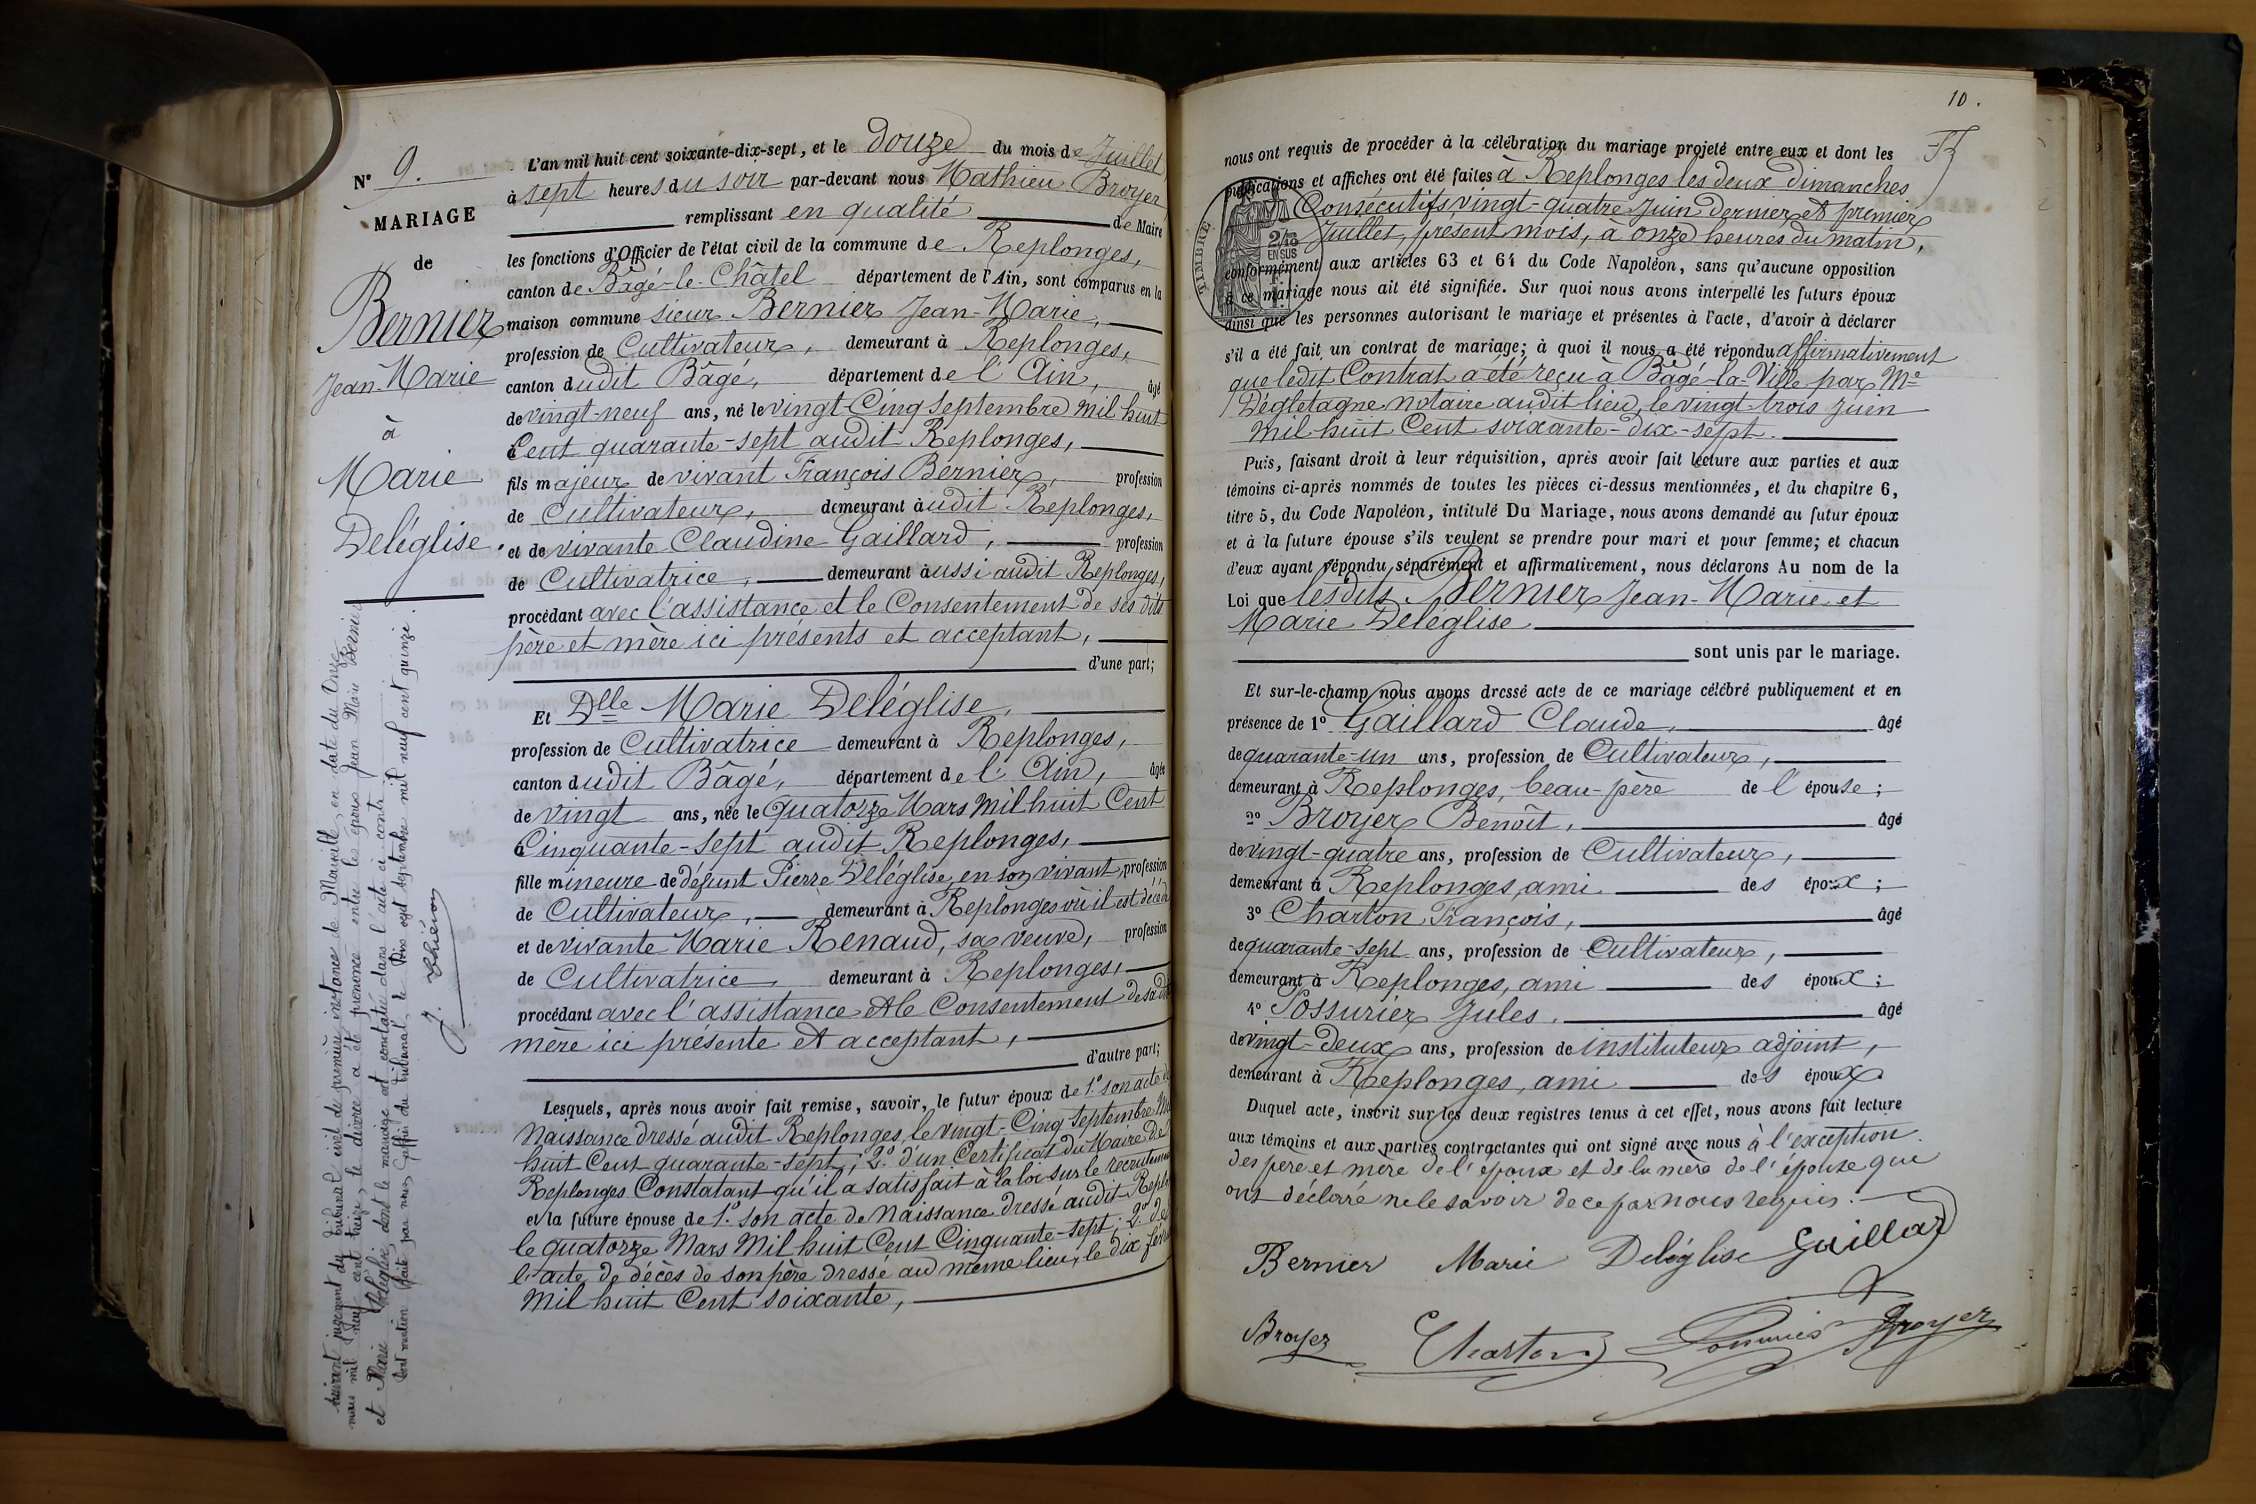 N° 9.
MARIAGE
de
Bernier
Jean-Marie
à
Marie
Deléglise.
Suivant jugement du tribunal civil de première instance de Marseille, en date du Onze
mars mil neuf cent treize, le divorce a été prononcé entre les époux Jean Marie Bernier
et Marie Deléglise, dont le mariage est constaté dans l'acte ci-contre.
Dont mention faite par nous, Greffier du tribunal, le vingt septembre mil neuf cent quinze.
L'an mil huit cent soixante-dix-sept, et le douze du mois de Juillet
à sept heures du soir par-devant nous Mathieu Broyer
remplissant en qualité de Maire
les fonctions d'Officier de l'état civil de la commune de Replonges,
canton de Bâgé-le-Châtel département de l'Ain, sont comparus en la
maison commune sieur Bernier Jean-Marie,
profession de Cultivateur, demeurant à Replonges,
canton dudit Bâgé, département de l'Ain, âgé
de vingt-neuf ans, né le vingt-Cinq Septembre mil huit
Cent quarante-sept audit Replonges,
fils majeur de vivant François Bernier, profession
de Cultivateur, demeurant audit Replonges,
et de vivante Claudine Gaillard, profession
de Cultivatrice, demeurant aussi audit Replonges,
procédant avec l'assistance et le Consentement de ses dits
père et mère ici présents et acceptant,
d'une part;
Et Dlle Marie Deléglise,
profession de Cultivatrice demeurant à Replonges,
canton dudit Bâgé, département de l'Ain, âgée
de vingt ans, née le Quatorze Mars mil huit Cent
Cinquante-sept audit Replonges,
fille mineure de défunt Pierre Deléglise, en son vivant, profession
de Cultivateur, demeurant à Replonges où il est décédé
et de vivante Marie Renaud, sa veuve, profession
de Cultivatrice demeurant à Replonges,
procédant avec l'assistance et le Consentement de sa dite
mère ici présente et acceptant,
d'autre part;
Lesquels, après nous avoir fait remise, savoir, le futur époux de 1° son acte de
Naissance dressé audit Replonges, le vingt-Cinq Septembre Mil
huit Cent quarante-sept; 2° d'un Certificat du Maire de
Replonges Constatant qu'il a satisfait à la loi sur le recrutement
et la future épouse de 1° son acte de Naissance dressé audit Repl
le quatorze Mars Mil huit Cent Cinquante-sept; 2° de
l'acte de décès de son père dressé au même lieu, le dix
Mil huit Cent soixante,
10.
nous ont requis de procéder à la célébration du mariage projeté entre eux et dont les
publications et affiches ont été faites à Replonges les deux dimanches
Consécutifs, vingt-quatre Juin dernier et premier
Juillet, présent mois, à onze heures du matin,
conformément aux articles 63 et 64 du Code Napoléon, sans qu'aucune opposition
à ce mariage nous ait été signifiée. Sur quoi nous avons interpellé les futurs époux
ainsi que les personnes autorisant le mariage et présentes à l'acte, d'avoir à déclarer
TIMBRE
2/10
EN SUS
s'il a été fait un contrat de mariage; à quoi il nous a été répondu affirmativement
que ledit Contrat a été reçu à Bâgé-la-Ville par Me
Dégletagne notaire audit lieu, le vingt trois Juin
Mil huit Cent soixante-dix-sept.
Puis, faisant droit à leur réquisition, après avoir fait lecture aux parties et aux
témoins ci-après nommés de toutes les pièces ci-dessus mentionnées, et du chapitre 6,
titre 5, du Code Napoléon, intitulé Du Mariage, nous avons demandé au futur époux
et à la future épouse s'ils veulent se prendre pour mari et pour femme; et chacun
d'eux ayant répondu séparément et affirmativement, nous déclarons Au nom de la
Loi que lesdits Bernier Jean-Marie et
Marie Deléglise
sont unis par le mariage.
Et sur-le-champ nous avons dressé acte de ce mariage célébré publiquement et en
présence de 1° Gaillard Claude, âgé
de quarante-un ans, profession de Cultivateur,
demeurant à Replonges, beau-père de l'épouse;
2° Broyer Benoît, âgé
de vingt-quatre ans, profession de Cultivateur,
demeurant à Replonges, ami des époux;
3° Charton François, âgé
de quarante-sept ans, profession de Cultivateur,
demeurant à Replonges, ami des époux;
4° Possurier Jules, âgé
de vingt-deux ans, profession de instituteur adjoint,
demeurant à Replonges, ami des époux.
Duquel acte, inscrit sur les deux registres tenus à cet effet, nous avons fait lecture
aux témoins et aux parties contractantes qui ont signé avec nous à l'exception
des père et mère de l'époux et de la mère de l'épouse qui
ont déclaré ne le savoir de ce par nous requis.
Bernier Marie Deléglise Gaillard
Broyer Charton Broyer